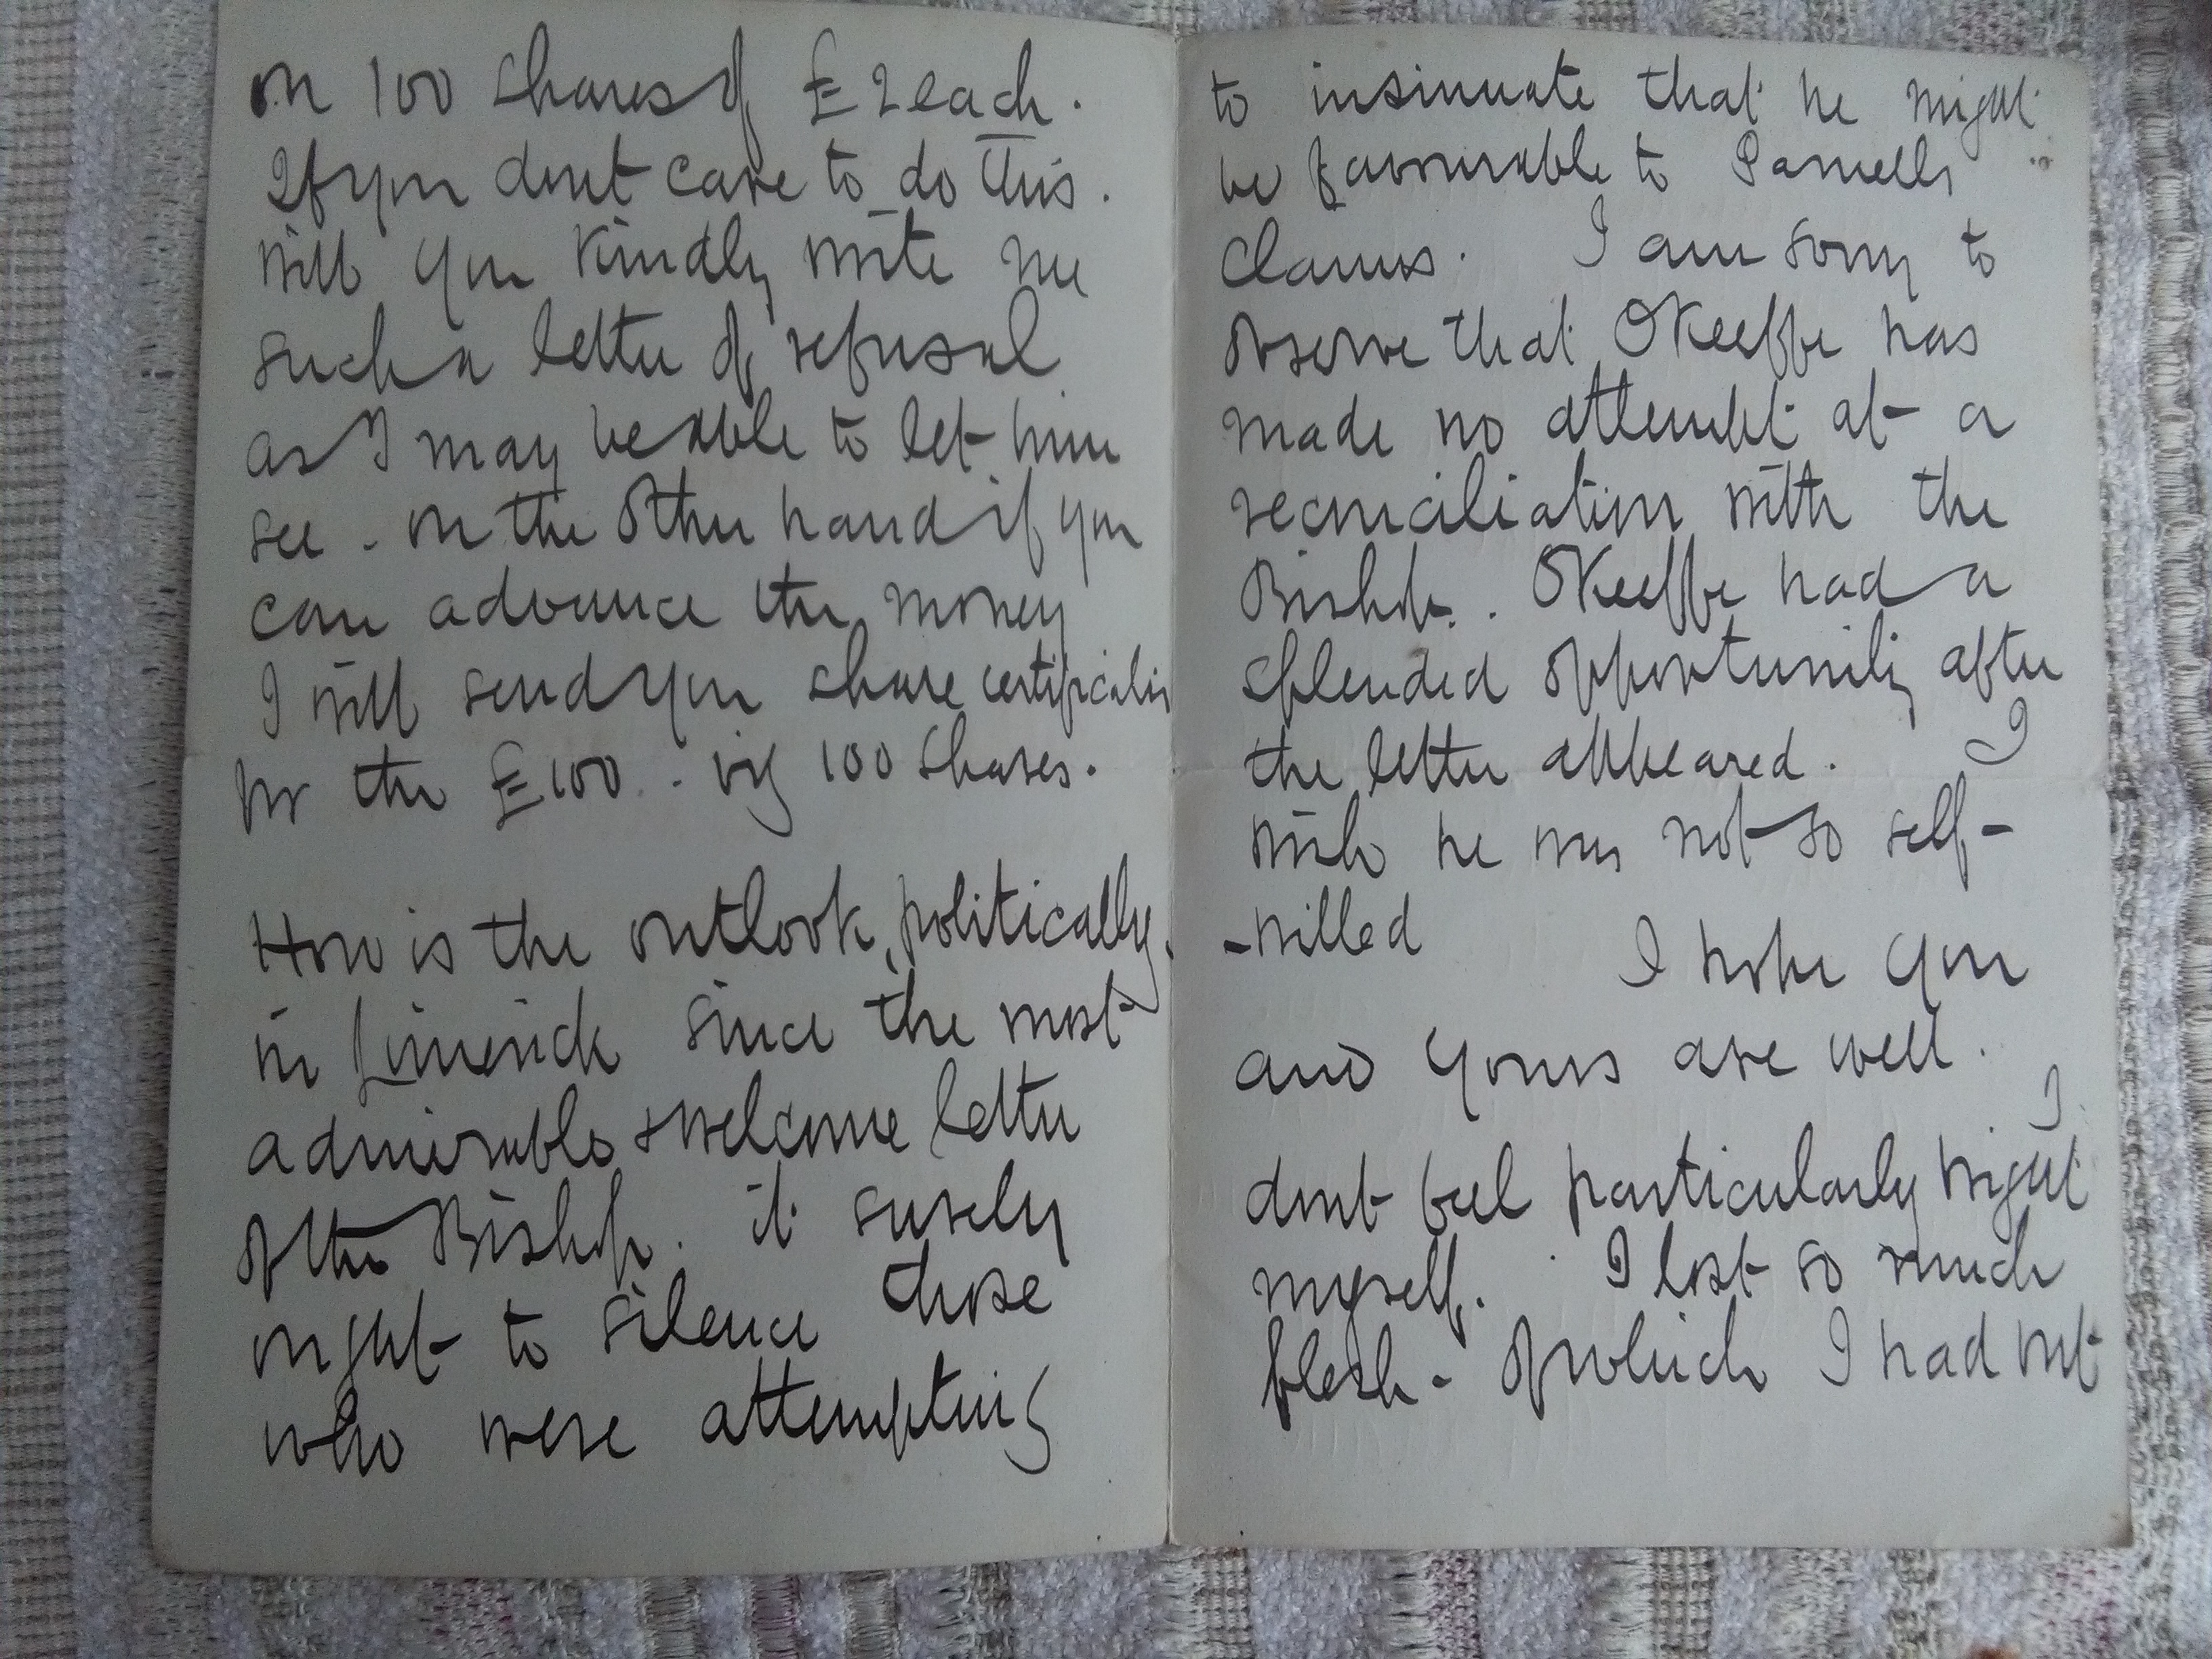 on 100 shares of £2 each.
If you dont care to do this.
will you kindly write me
such a letter of refusal
as I may be able to let him
see - on the other hand if you
can advance the money
I will send you share certificates
for the £100 - viz 100 shares.
How is the outlook, politically,
in Limerick since the most
admirable & welcome letter
of the Bishop. it surely
ought to silence those
who were attempting
to insinuate that he might
be favourable to Parnells
claims. I am sorry to
observe that OKeeffe has
made no attempt at a
reconciliation with the
Bishop. OKeeffe had a
splended opportunity after
the letter appeared. I
wish he was not so self-
-willed
I hope you
and yours are well.
I
dont feel particularly bright
myself. I lost so much
flesh - of which I had not